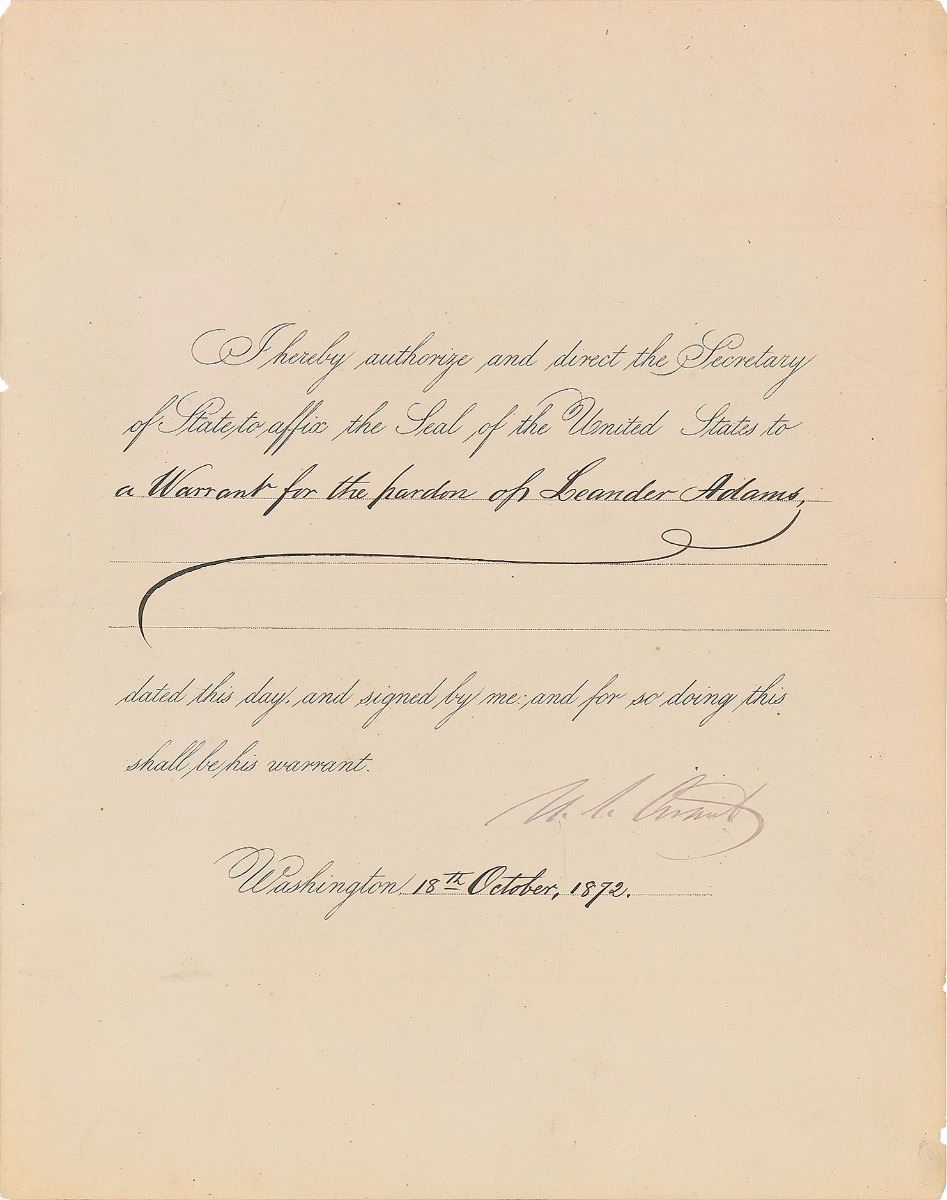 I hereby authorize and direct the Secretary
of State to affix the Seal of the United States to
a Warrant for the pardon of Leander Adams,
dated this day, and signed by me: and for so doing this
shall be his warrant.
U. S. Grant
Washington, 18th October, 1872.